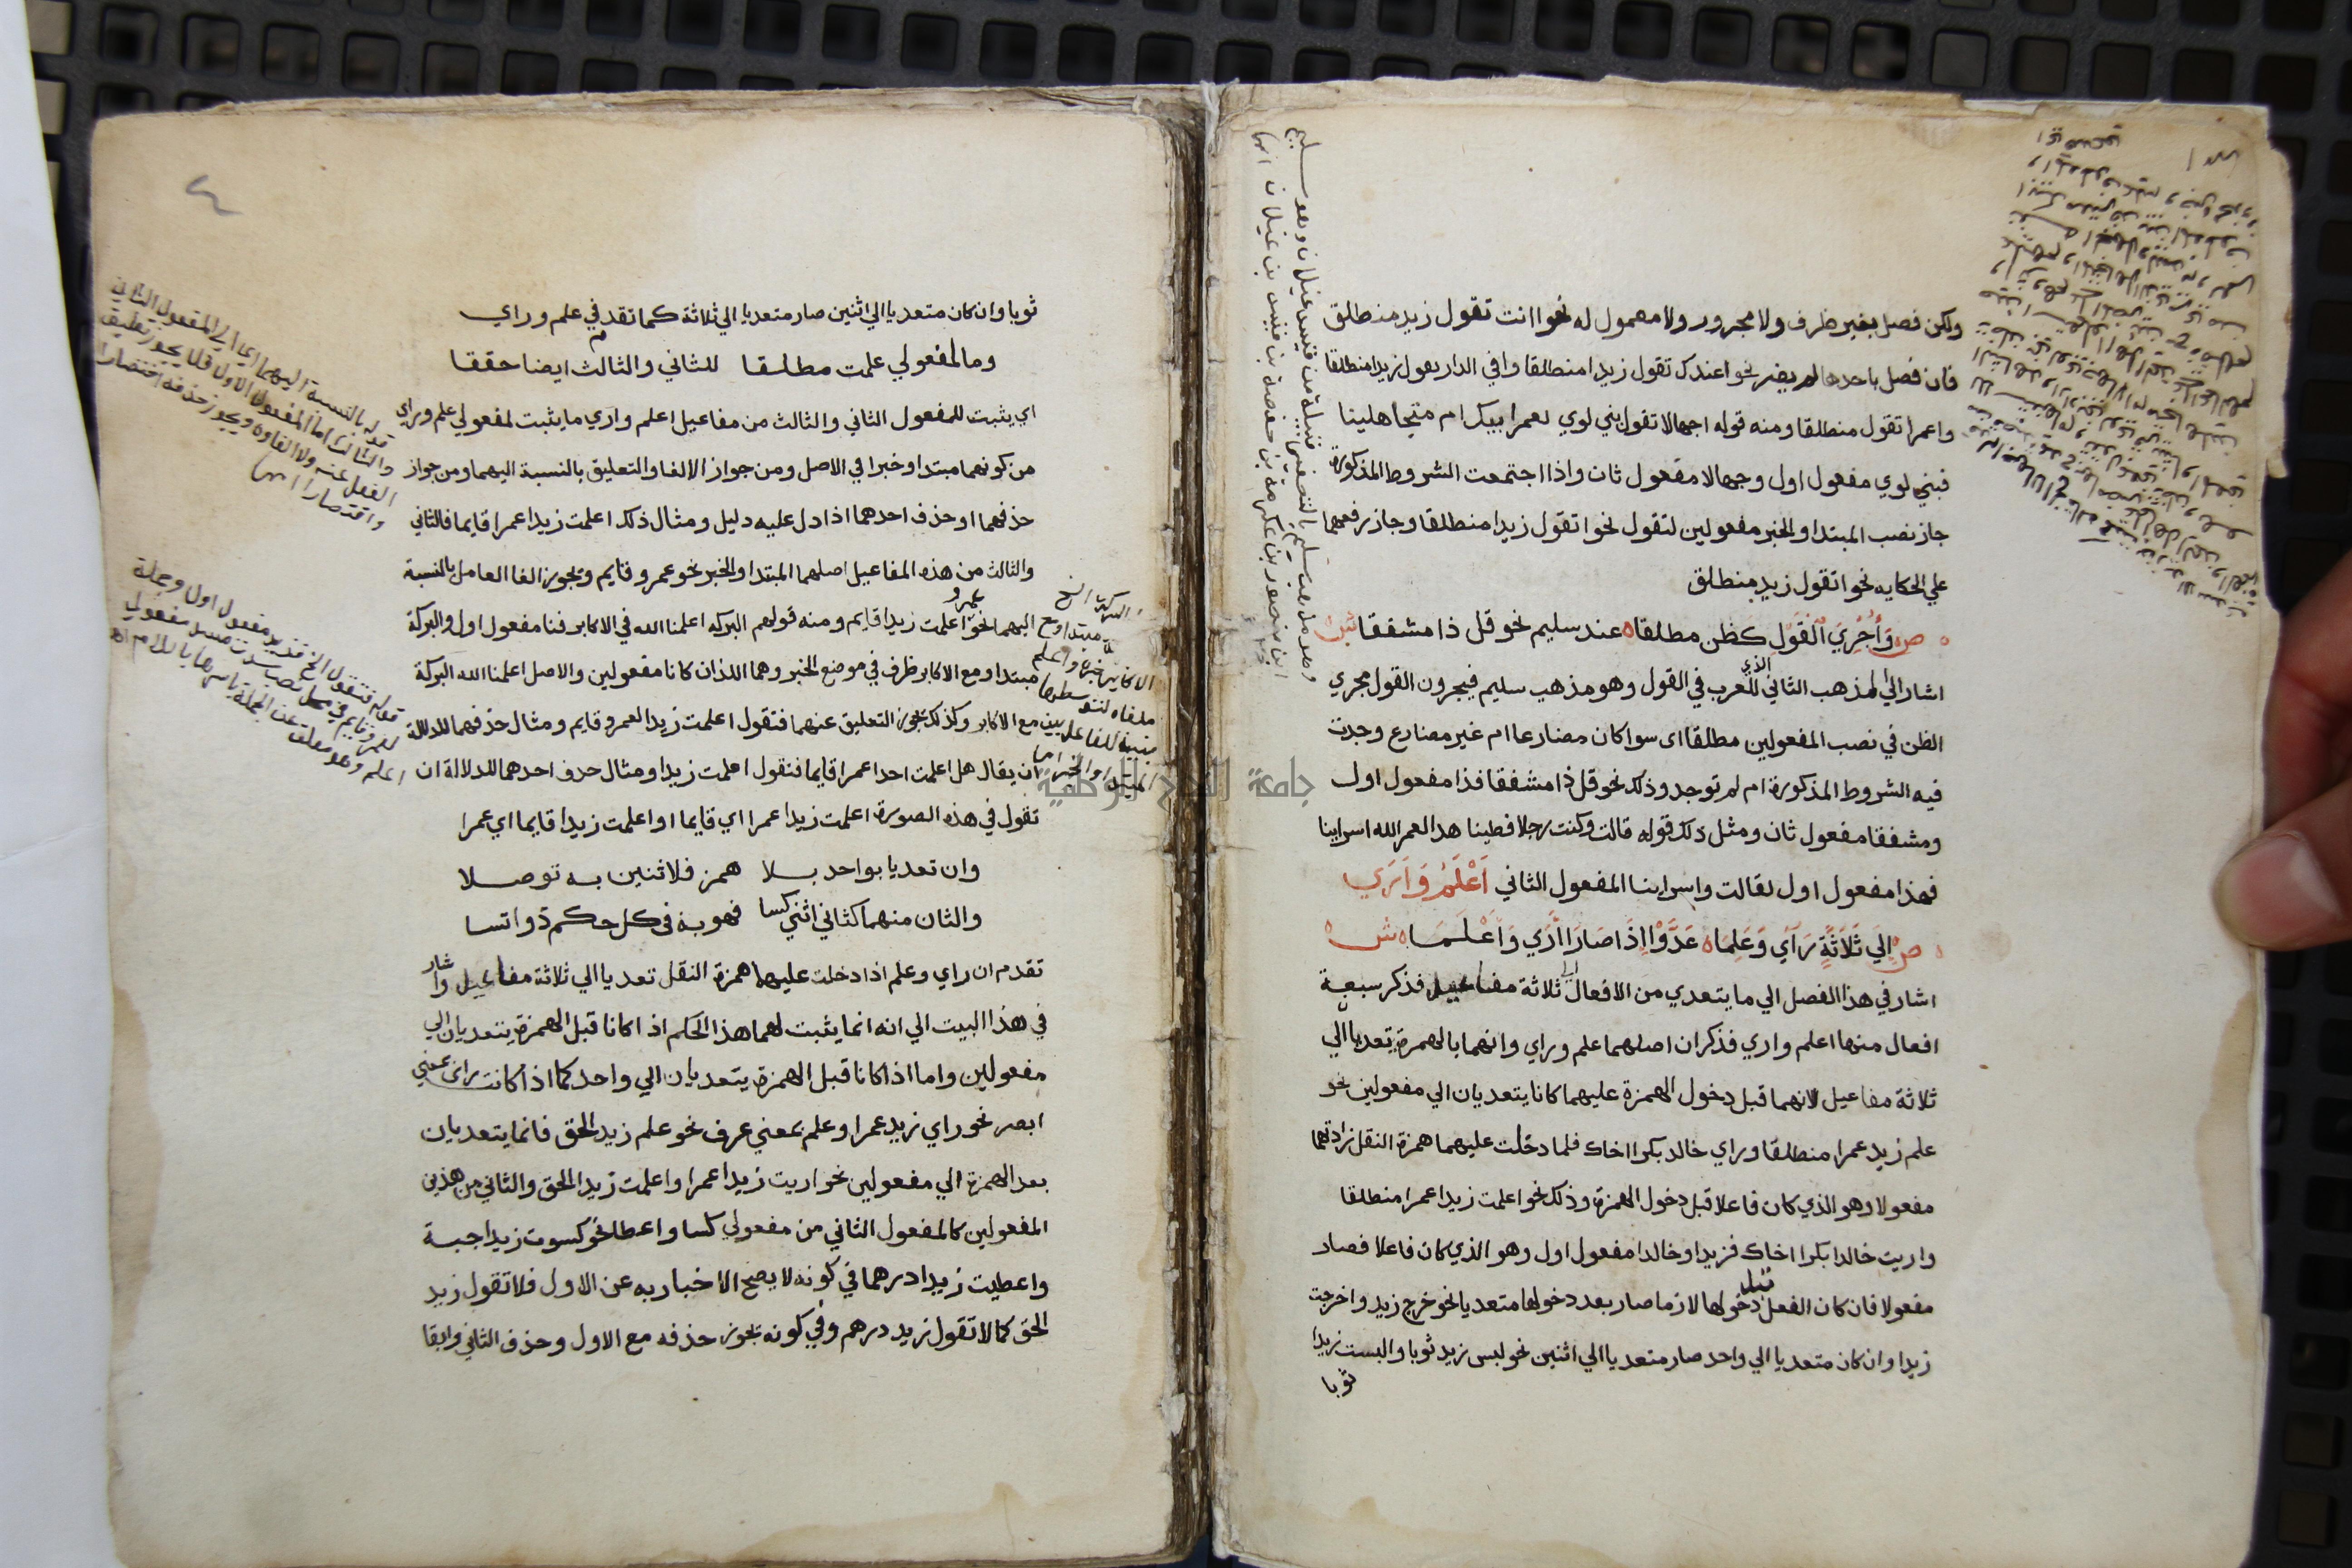 ولكن فصل بغير ظرف ولا مجرور ولا معمول له نحو اانت تقول زيد منطلق
فان فصل باحدها لم يضر نحو اعندك تقول زيدا منطلقا وافي الدار تقول زيدا منطلقا
واعمرا تقول منطلقا ومنه قوله اجهالا تقول بني لوي لعمر ابيك ام متجاهلينا
فبني لوي مفعول اول وجهالا مفعول ثان واذا اجتمعت الشروط المذكورة
جاز نصب المبتدا والخبر مفعولين لتقول نحو اتقول زيدا منطلقا وجاز رفعهما
علي الحكايه نحو اتقول زيد منطلق
ص وَأُجْرِيَ القَوْلِ كظن مطلقا عند سليم نحو قل ذا مشفقا ش
اشار الي المذهب الثاني الذي للعرب في القول وهو مذهب سليم فيجرون القول مجري
الظن في نصب المفعولين مطلقا اى سوا كان مضارعا ام غير مضارع وجدت
فيه الشروط المذكورة ام لم توجد وذلك نحو قل ذا مشفقا فذا مفعول اول
ومشفقا مفعول ثان ومثل ذلك قوله قالت وكنت رجلا فطينا هذا لعمر الله اسراينا
فهذا مفعول اول لقالت واسراينا المفعول الثاني أَعْلَمَ وَأَرَي
ص إِلَي ثَلَاثَةٍ رَآَي وَعَلِمَا عَدَّوْا إِذَا صَارَا أَرَي وَأَعْلَمَا ش
اشار في هذا الفصل الي ما يتعدي من الافعال الي ثلاثة مفاعيل فذكر سبعة
افعال منها اعلم واري فذكر ان اصلهما علم وراي وانهما بالهمزة تعديا الي
ثلاثة مفاعيل لانهما قبل دخول الهمزة عليهما كانا يتعديان الي مفعولين نحو
علم زيد عمرا منطلقا وراي خالد بكرا اخاك فلما دخلت عليهما همزة النقل زادتهما
مفعولا وهو الذي كان فاعلا قبل دخول الهمزة وذلك نحو اعلمت زيدا عمرا منطلقا
واريت خالدا بكرا اخاك فزيدا وخالدا مفعول اول وهو الذي كان فاعلا فصار
مفعولا فان كان الفعل قبل دخولها لازما صار بعد دخولها متعديا نحو خرج زيد واخرجت
زيدا وان كان متعديا الي واحد صار متعديا الي اثنين نحو لبس زيد ثوبا والبست زيدا
ثوبا
ثوبا وان كان متعديا الي اثنين صار متعديا الي ثلاثة كما تقدم في علم وراي
وما لمفعولي علمت مطلقا للثاني والثالث ايضا حققا
اي يثبت للمفعول الثاني والثالث من مفاعيل اعلم واري ما يثبت لمفعولي علم وراي
من كونهما مبتدا وخبرا في الاصل ومن جواز الالغا والتعليق بالنسبة اليهما ومن جواز
حذفهما او حذف احدهما اذا دل عليه دليل ومثال ذلك اعلمت زيدا عمرا قايما فالثاني
والثالث من هذه المفاعيل اصلهما المبتدا والخبر نحو عمرو قايم ويجوز الغا العامل بالنسبة
اليهما نحو عمرو اعلمت زيدا قايم ومنه قولهم البركه اعلمنا الله في الاكابر فنا مفعول اول والبركة
مبتدا ومع الاكابر ظرف في موضع الخبر وهما اللذان كانا مفعولين والاصل اعلمنا الله البركة
مع الاكابر وكذلك يجوز التعليق عنهما فتقول اعلمت زيدا لعمرو قايم ومثال حذفهما للدلالة
ان يقال هل اعلمت احدا عمرا قايما فتقول اعلمت زيدا ومثال حذف احدهما للدلالة ان
تقول في هذه الصورة اعلمت زيدا عمرا اي قايما او اعلمت زيدا قايما اي عمرا
وان تعديا بواحد بلا همز فلاثنين به توصلا
والثان منهما كثاني اثني كسا فهو به في كل حكم ذو اتسا
تقدم ان راي وعلم اذا دخلت عليهما همزة النقل تعديا الي ثلاثة مفاعيل واشار
في هذا البيت الي انه انما يثبت لهما هذا الحكم اذا كانا قبل الهمزة يتعديان الي
مفعولين واما اذا كانا قبل الهمزة يتعديان الي واحد كما اذا كانت راى بمعني
ابصر نحو راي زيد عمرا وعلم بمعني عرف نحو علم زيد الحق فانما يتعديان
بعد الهمزة الي مفعولين نحو اريت زيدا عمرا واعلمت زيدا الحق والثاني من هذين
المفعولين كالمفعول الثاني من مفعولي كسا واعطا نحو كسوت زيدا جبة
واعطيت زيدا درهما في كونه لا يصح الاخبار به عن الاول فلا تقول زيد
الحق كما لا تقول زيد درهم وفي كونه يجوز حذفه مع الاول وحذف الثاني وابقا
قوله بالنسبة اليهما اي الي المفعول الثاني
والثالث اما المفعول الاول فلا يجوز تعليق
الفعل عنه ولا الغاوه ويجوز حذفه اختصارا
واقتصارا انتهى
قوله فتقول الخ فزيد مفعول اول وجملة
لعمرو قايم في محل نصب سدت مسد مفعولي
اعلم وهو معلق عن الجملة باسرها باللام اهـ
جامعة النجاح الوطنية